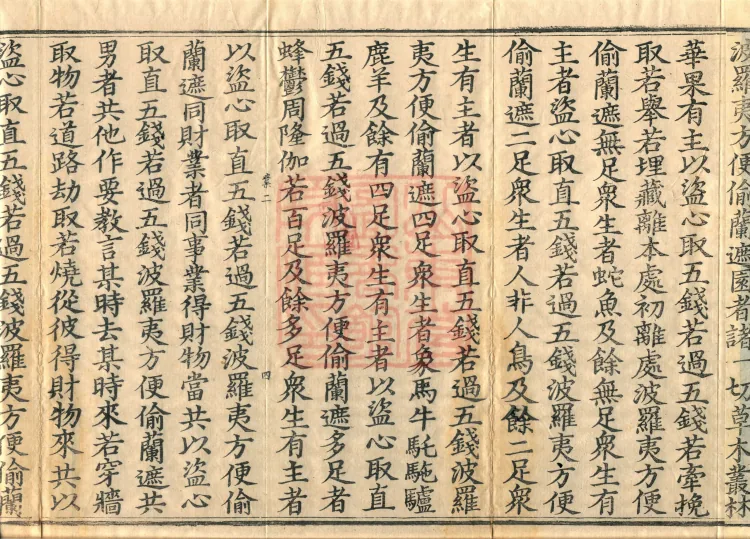 波羅夷方便偷蘭遮園者諸一切草木叢林
華果有主以盜心取五錢若過五錢若牽挽
取若舉若埋藏離本處初離處波羅夷方便
偷蘭遮無足衆生者蛇魚及餘無足衆生有
主者盜心取直五錢若過五錢波羅夷方便
偷蘭遮二足衆生者人非人鳥及餘二足衆
生有主者以盜心取直五錢若過五錢波羅
夷方便偷蘭遮四足衆生者象馬牛駞馳驢
鹿羊及餘有四足衆生有主者以盜心取直
五錢若過五錢波羅夷方便偷蘭遮多足者
蜂鬱周隆伽若百足及餘多足衆生有主者
業二 四
以盜心取直五錢若過五錢波羅夷方便偷
蘭遮同財業者同事業得財物當共以盜心
取直五錢若過五錢波羅夷方便偷蘭遮共
男者共他作要教言某時去某時來若穿牆
取物若道路劫取若燒從彼得財物來共以
盜心取直五錢若過五錢波羅夷方便偷蘭